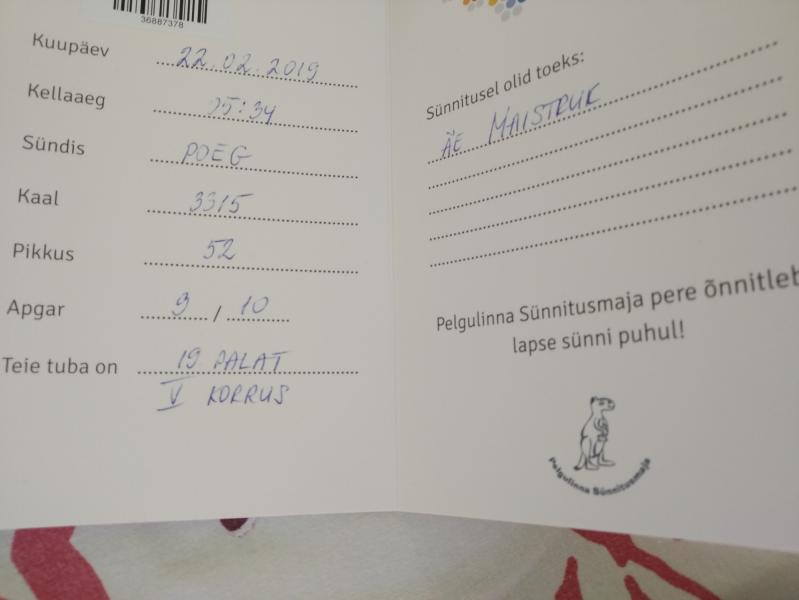 36887378
Kuupäev 22.02.2019
Kellaaeg 05:34
Sündis POEG
Kaal 3315
Pikkus 52
Apgar 9 / 10
Teie tuba on 19 PALAT
V KORRUS
Sünnitusel olid toeks:
ÄE MAISTRUK
Pelgulinna Sünnitusmaja pere õnnitleb
lapse sünni puhul!
Pelgulinna Sünnitusmaja